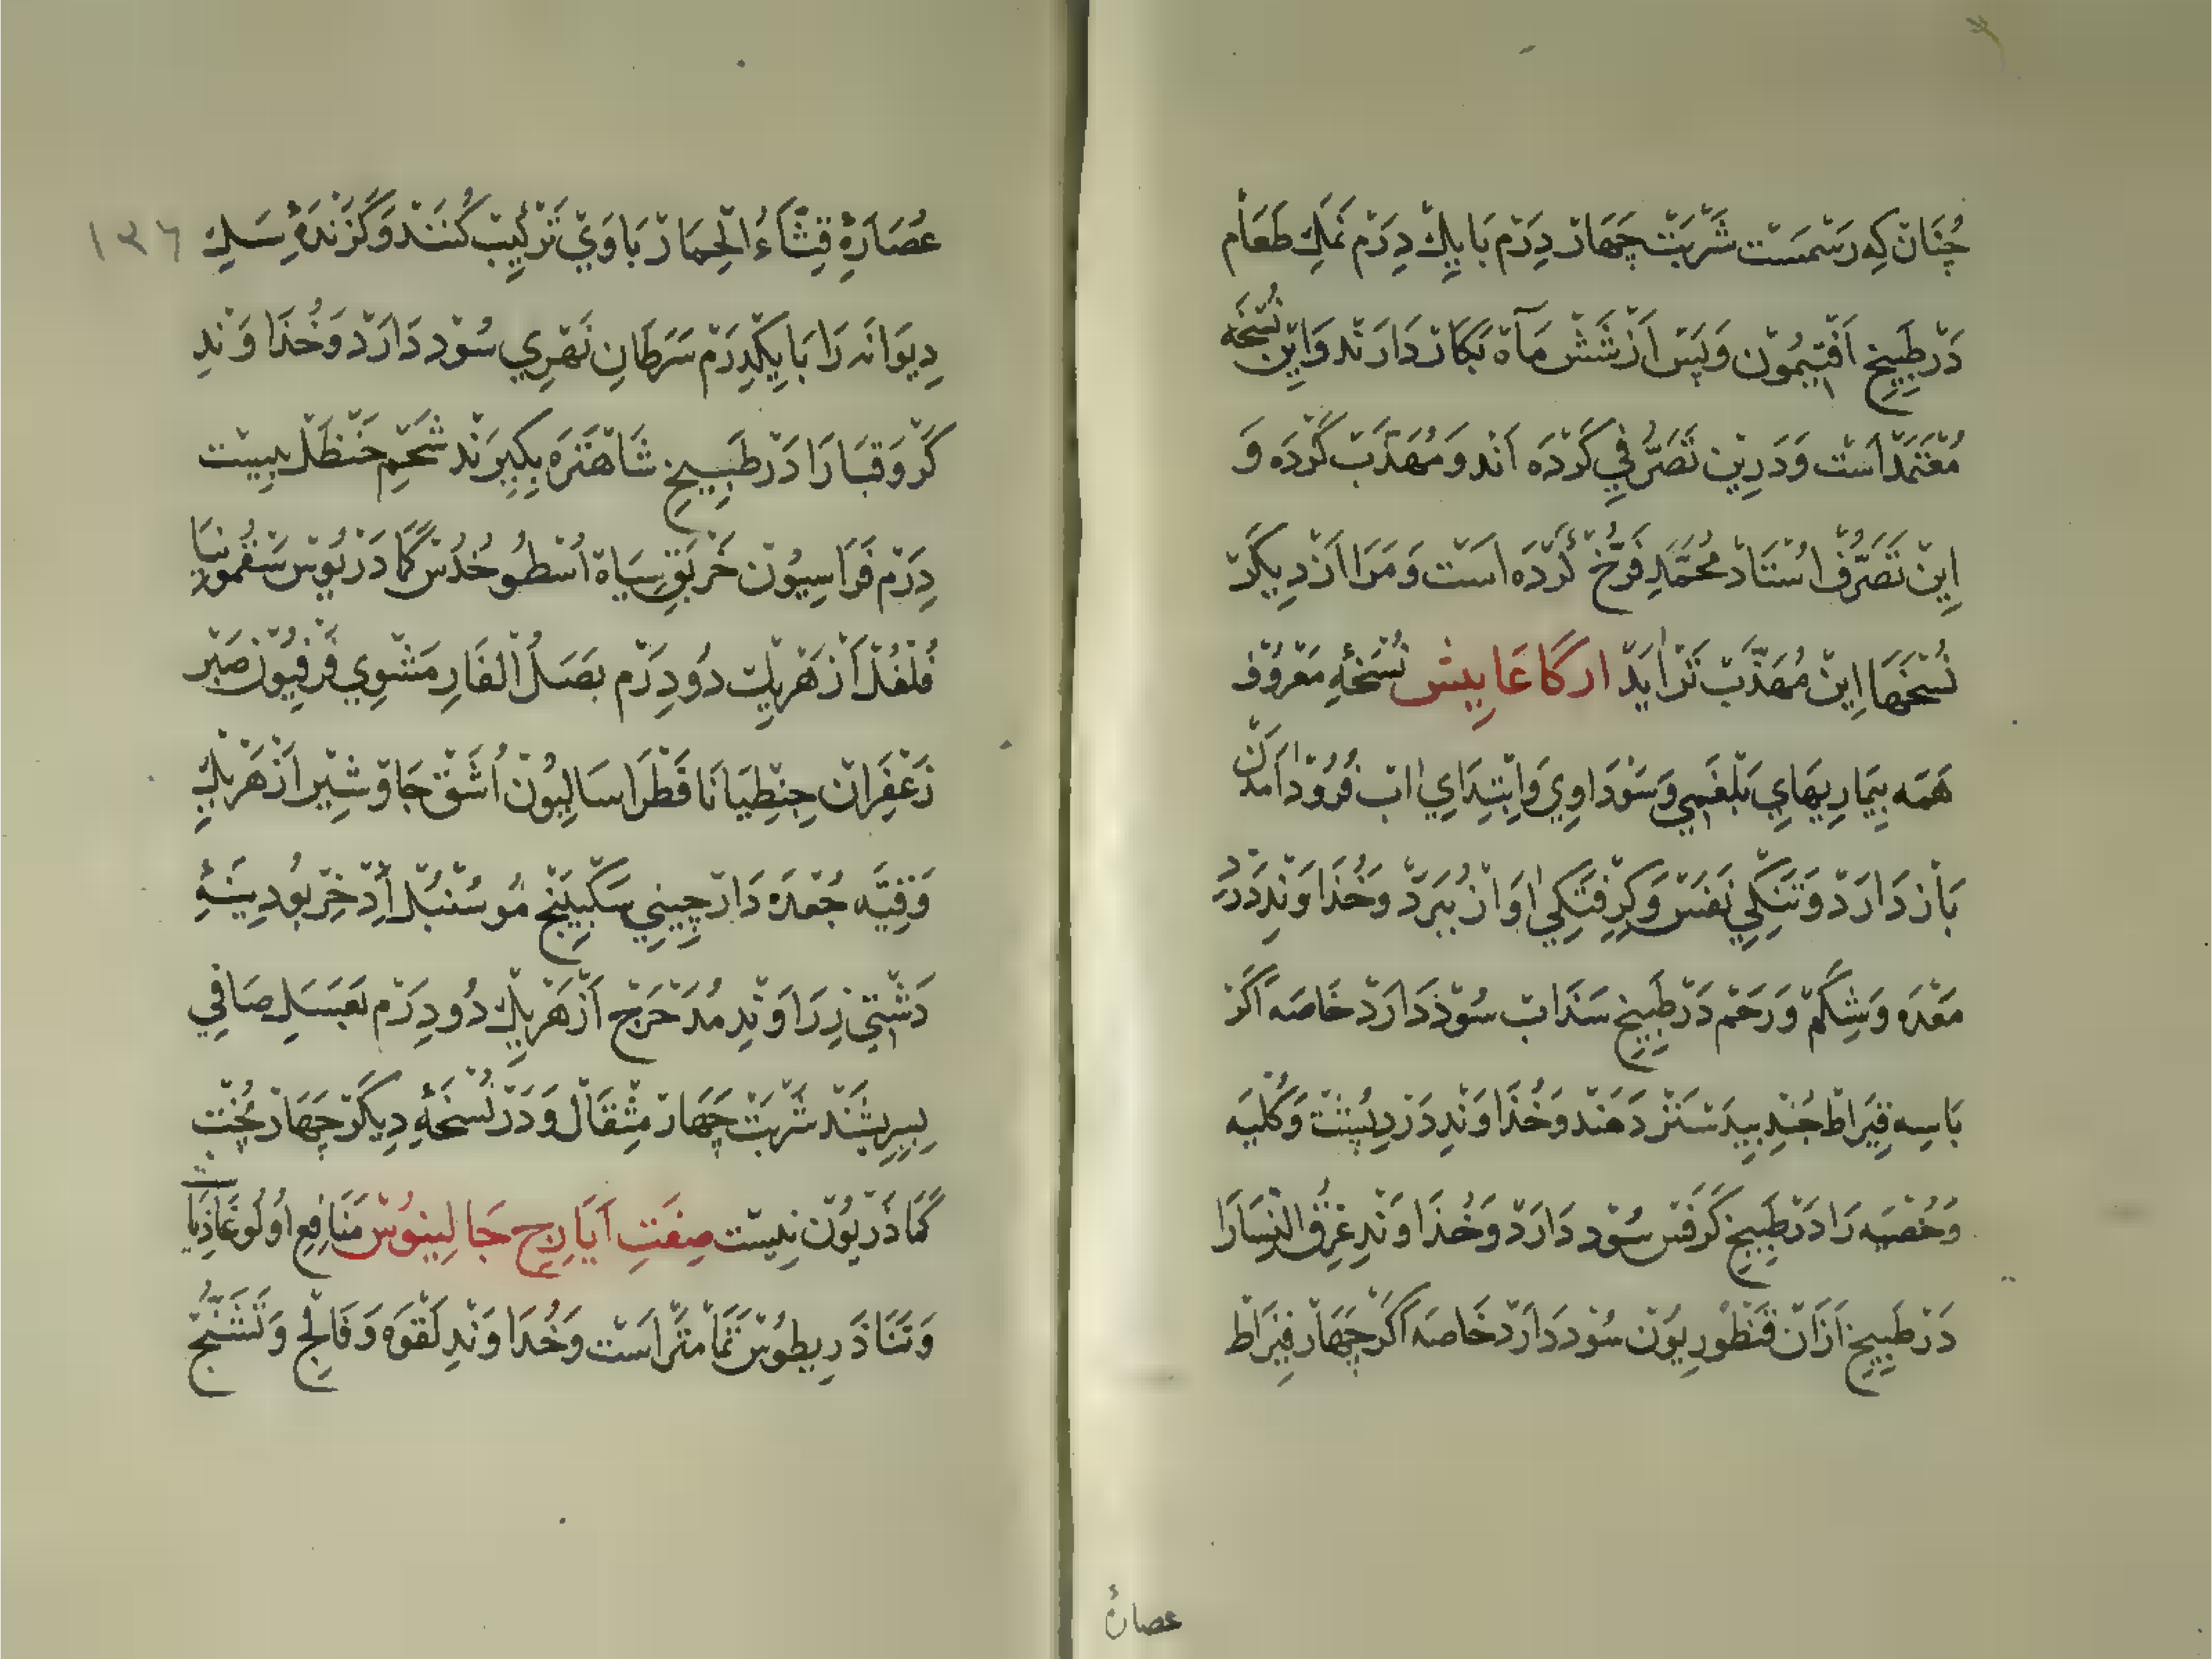 چنان که رسمست شربت چهار درم با یک درم نمک طعام
در طبیخ افتیمون و پس از شش ماه بکار دارند و این نسخه
معتمد است و درین تصرفی کرده اند و مهذب کرده و
این تصرف استاد محمد فرخ کرده است و مرا از دیگر
نسخها این مهذب تر اید ارکاغابیش نسخه معروف
همه بیماریهای بلغمی و سوداوی و ابتدای اب فرود امدن
باز دارد و تنکی نفس و کرفتکی اواز ببرد و خداوند درد
معده و شکم و رحم در طبیخ سذاب سوذ دارد خاصه اکر
با سه قیراط جند بیدستر دهند و خذاوند درد پشت و کلیه
و خصیه را در طبیخ کرفس سود دارد و خذاوند عرق النسا را
در طبیخ ازان قنطوریون سود دارد خاصه اکر چهار قیراط
عصاره
۱۳٦
عصاره قثاء الحمار با وی ترکیب کنند و کزنده سک
دیوانه را با یکدرم سرطان نهری سود دارد و خذاوند
کر و قبا را در طبیخ شاهتره بکیرند شحم حنظل بیست
درم فراسیون خربق سیاه اسطوخدس کمادریوس سقمونیا
فلفل از هر یک دو درم بصل الفار مشوی فرفیون صبر
زعفران جنطیانا فطراسالیون اشق جاوشیر از هر یک
وقیه جعده دارچینی سکبینج مو سنبل اذخر بودینه
دشتی زراوند مدحرج از هر یک دو درم بعسل صافی
بسریشند شربت چهار مثقال و در نسخه دیکر چهار بخت
کماذریون نیست صفت ایارج جالینوس منافع اولوغاذیا
و تناذریطوس تمامتر است و خداوند لقوه و فالج و تشنج